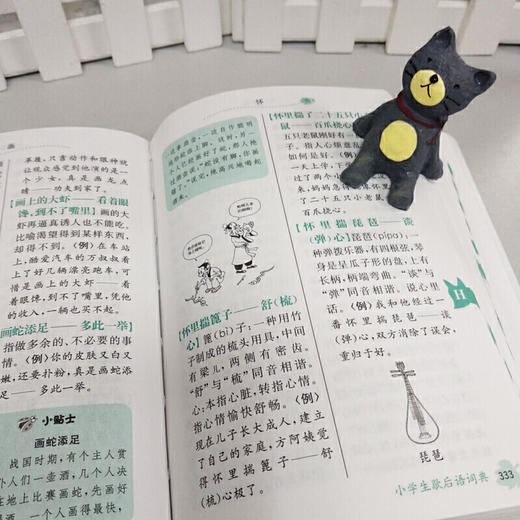 画
革履，只靠动作和眼神就
让观众感觉到他演的是一
个少女，真是画龙点
睛——功夫到家了。
【画上的大虾——看着眼
馋，到不了嘴里】画的大
虾再逼真诱人也不能吃，
比喻渴望得到某样东西，
却得不到。〈例〉在车站
上，酷爱汽车的万叔叔看
上了好几辆漂亮跑车，可
惜是画上的大虾——看
着眼馋，到不了嘴里，凭他
的收入，一辆也买不起。
画蛇添足——多此一举】
指做多余的、不必要的事
情。〈例〉你的皮肤又白又
嫩，还要扑粉，真是画蛇添
足——多此一举。
小贴士
画蛇添足
战国时期，有个主人赏
仆人们一壶酒，几个人决
在地上比赛画蛇，先画的
酒。一个人画得最快，
怀
了。”说完，他高兴地喝起
【怀里揣篦子——舒（梳）
心】篦（bì）子：一种用竹
子制成的梳头用具，中间
有梁儿，两侧有密齿。
“舒”与“梳”同音相谐。
心：本指心脏，转指心情。
指心情愉快舒畅。〈例〉
现在儿子长大成人，建立
了自己的家庭，方阿姨觉
得怀里揣篦子——舒
（梳）心极了。
【怀里揣了二十五只小
鼠——百爪挠心】
五只老鼠刚好有一
子。指人心烦意乱
如何是好。〈例〉
过了两个小
来，妈妈急得
了二十五只小老鼠
百爪挠心。
【怀里揣琵琶——谈
（弹）心】琵琶（pípɑ）：一
种弹拨乐器，有四根弦，琴
身是呈瓜子形的盘，上有
长柄，柄端弯曲。“谈”与
“弹”同音相谐。说心里
话。〈例〉我和他经过一
番怀里揣琵琶——谈
（弹）心，双方消除了误会，
重归于好。
H
琵琶
小学生歇后语词典
333